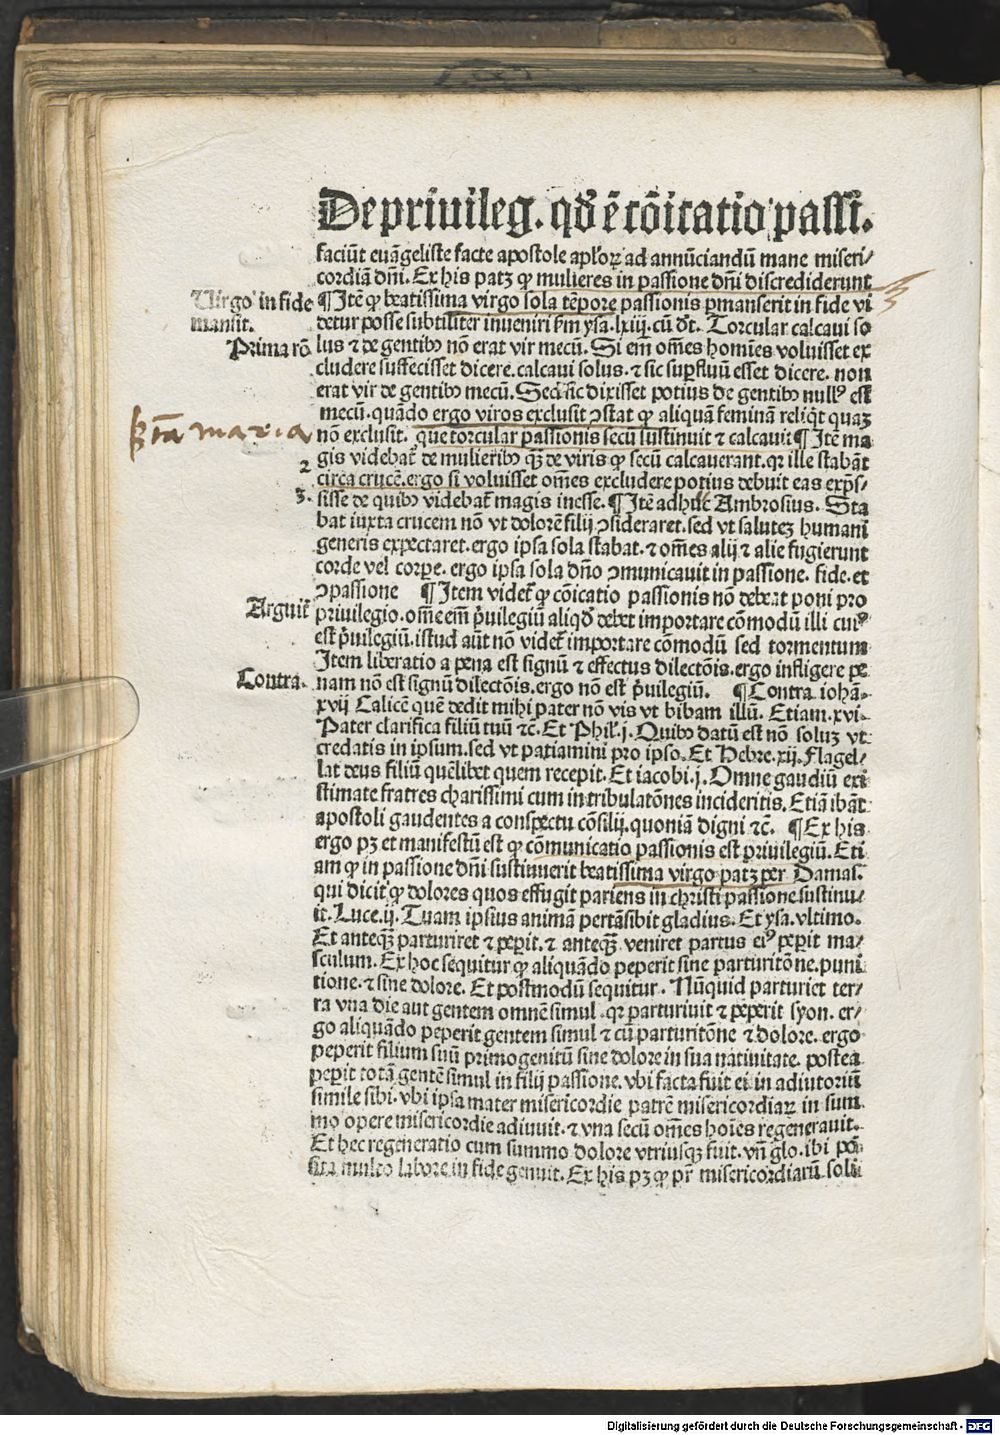 De priuileg. qd̛ ē cōicatio passi.
faciūt euāgeliste facte apostole apl'oꝝ ad annūciandū mane miseri/
cordiā dn̄i. Ex his patꝫ ꝙ mulieres in passione dn̄i discrediderunt
Uirgo in fide
mansit.
¶ Itē ꝙ beatissima virgo sola tēpore passionis ꝑmanserit in fide vi
detur posse subtiliter inueniri ẜm ysa. lxiij. cū d̛t. Torcular calcaui so
Prima rō
lus ⁊ de gentibꝰ nō erat vir mecū. Si em̄ om̄es homīes voluisset ex
cludere suffecisset dicere. calcaui solus. ⁊ sic suꝑfluū esset dicere. non
erat vir de gentibꝰ mecū. Sed sic dixisset potius de gentibꝰ nullꝰ est
mecū. quādo ergo viros exclusit ↄstat ꝙ aliquā feminā reliq̄t quaꝫ
maria
nō exclusit. que torcular passionis secū sustinuit ⁊ calcauit ¶ Itē ma
gis videbat̄ de mulieribꝰ qꝫ de viris ꝙ secū calcauerant. qꝛ ille stabāt
2
circa crucē. ergo si voluisset om̄es excludere potius debuit eas exp̄s/
3.
sisse de quibꝰ videbat̄ magis inesse. ¶ Itē adhuc Ambrosius. Sta
bat iuxta crucem nō vt dolorē filij ↄsideraret. sed vt saluteꝫ humani
generis expectaret. ergo ipsa sola stabat. ⁊ om̄es alij ⁊ alie fugierunt
corde vel corꝑe. ergo ipsa sola dn̄o ↄmunicauit in passione. fide. et
ↄpassione ¶ Item videt̄ ꝙ cōicatio passionis nō debeat poni pro
Arguit̄
priuilegio. om̄e em̄ p̄uilegiū aliqd̛ debet importare cōmodū illi cuiꝰ
est p̄uilegiū. istud aūt nō videt̄ importare cōmodū sed tormentum
Item liberatio a pena est signū ⁊ effectus dilectōis. ergo infligere pe
Contra.
nam nō est signū dilectōis. ergo nō est p̄uilegiū. ¶ Contra iohā.
xvij Calicē quē dedit mihi pater nō vis vt bibam illū. Etiam. xvi.
Pater clarifica filiū tuū ⁊c. Et Phil'. j. Quibꝰ datū est nō soluꝫ vt
credatis in ipsum. sed vt patiamini pro ipso. Et Hebre. xij. Flagel/
lat deus filiū quēlibet quem recepit. Et iacobi. j. Omne gaudiū exi
stimate fratres charissimi cum in tribulatōnes incideritis. Etiā ibāt
apostoli gaudentes a conspectu cōsilij. quoniā digni ⁊c. ¶ Ex his
ergo pꝫ et manifestū est ꝙ cōmunicatio passionis est priuilegiū. Eti
am ꝙ in passione dn̄i sustinuerit beatissima virgo patꝫ per Damas.
qui dicit ꝙ dolores quos effugit pariens in christi passione sustinu/
it. Luce. ij. Tuam ipsius animā pertāsibit gladius. Et ysa. vltimo.
Et anteqꝫ parturiret ⁊ peꝑit. ⁊ anteqꝫ veniret partus eiꝰ peꝑit ma/
sculum. Ex hoc sequitur ꝙ aliquādo peperit sine parturitōne. puni
tione. ⁊ sine dolore. Et postmodū sequitur. Nūquid parturiet ter/
ra vna die aut gentem omnē simul. qꝛ parturiuit ⁊ peperit syon. er/
go aliquādo peperit gentem simul ⁊ cū parturitōne ⁊ dolore. ergo
peperit filium suū primogenitū sine dolore in sua natiuitate. postea
peꝑit totā gentē simul in filij passione. vbi facta fuit ei in adiutoriū
simile sibi. vbi ipsa mater misericordie patrē misericordiaꝝ in sum
mo opere misericordie adiuuit. ⁊ vna secū om̄es hoīes regenerauit.
Et hec regeneratio cum summo dolore vtriusqꝫ fuit. vn̄ glo. ibi
multo labore in fide genuit. Ex his pꝫ ꝙ pr̄ misericordiarū soli
Digitalisierung gefördert durch die Deutsche Forschungsgemeinschaft - DFG